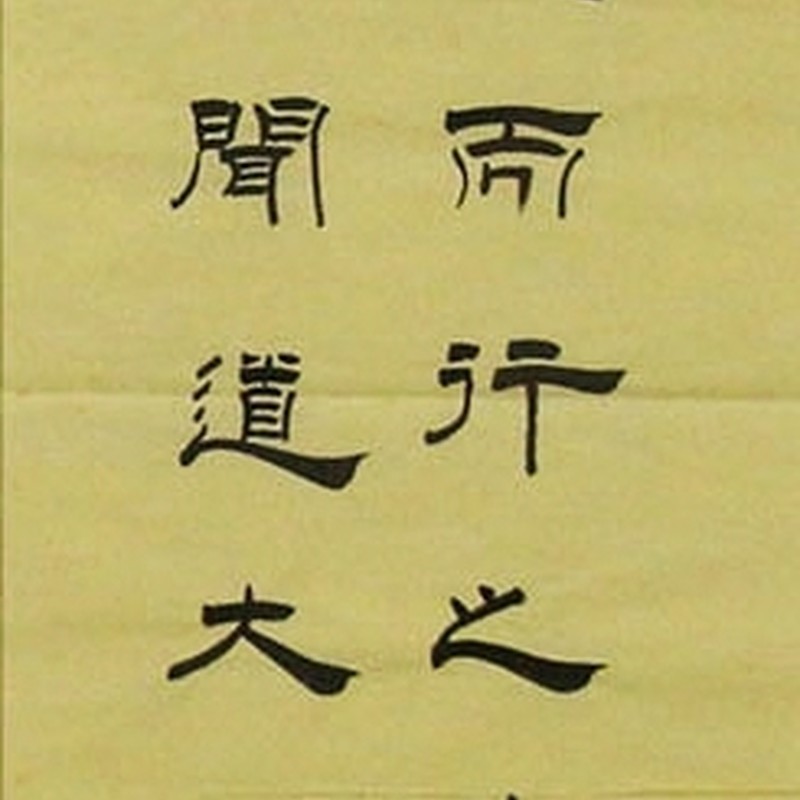 而行之
聞道大